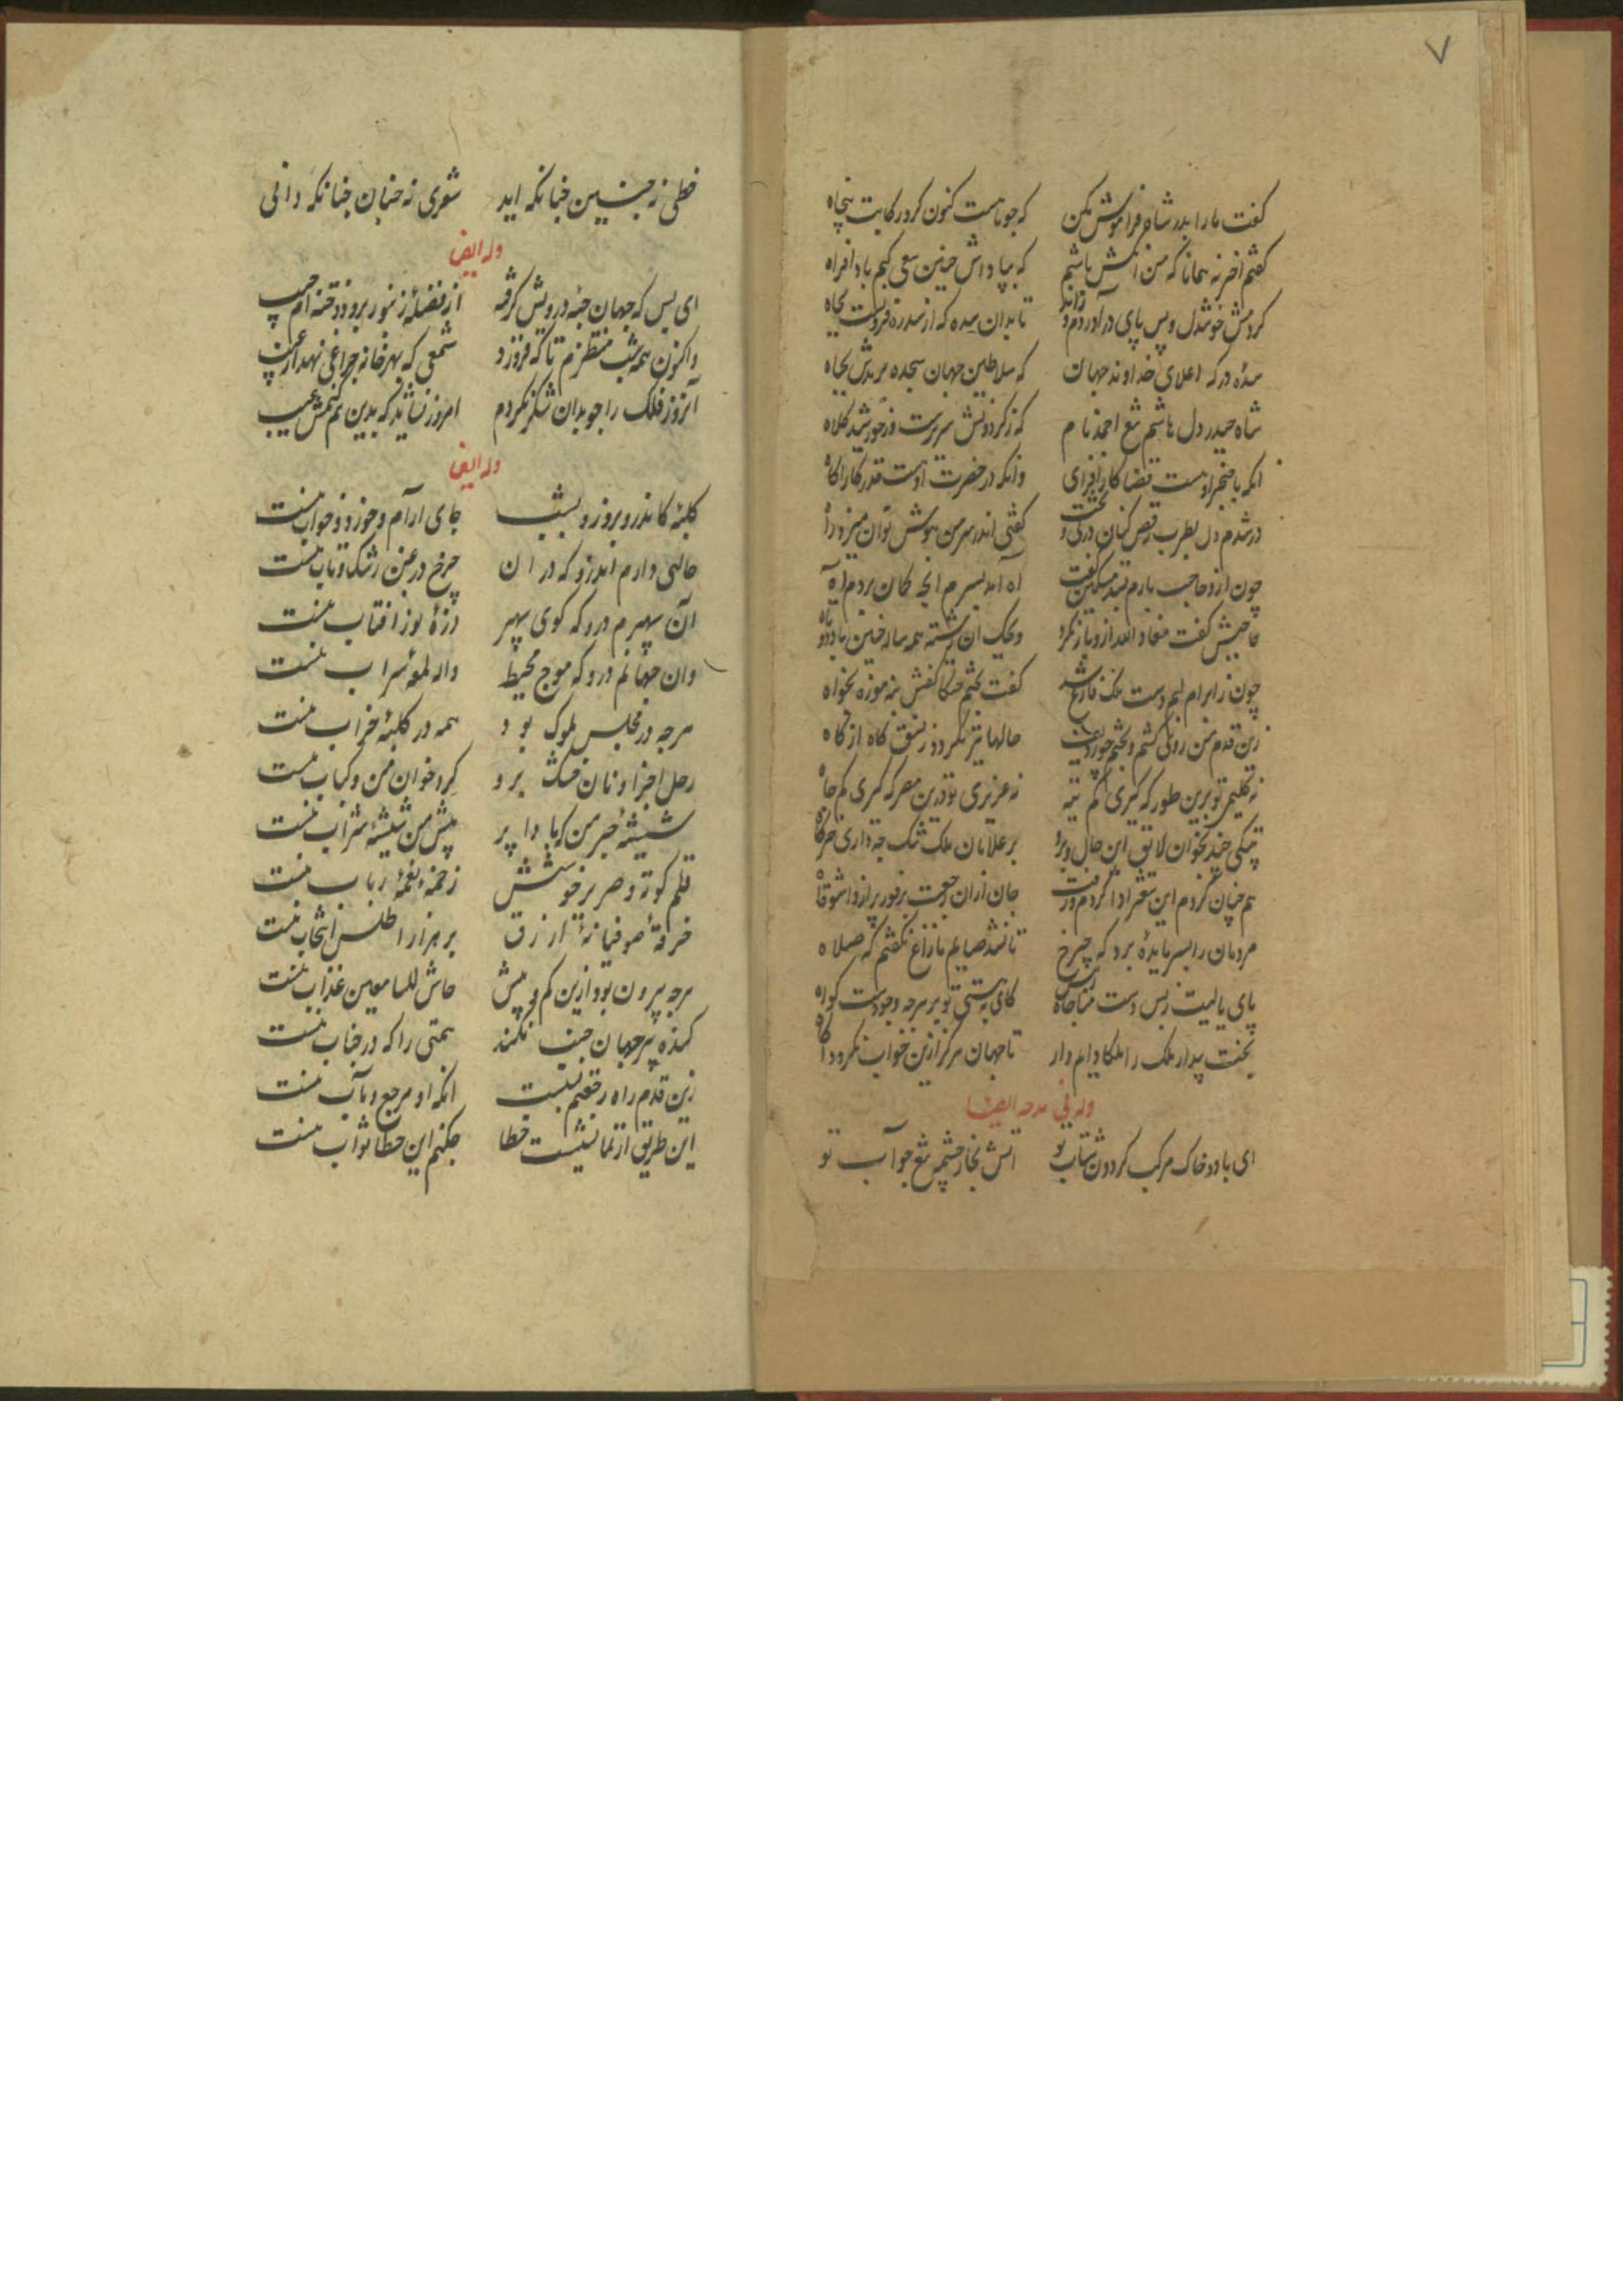 ٧
گفت ما را بدر شاه فراموش مکن که چو ماهست کنون کرد رکابت پنجاه
گفتم اخر نه همانا که من انکس باشم که بپاداش چنین سعی کنم باد افراه
کردمش خوشدل و پس پای درآوردم و تا بدان سده که از سدره فزونست بجاه
سده درکه اعلای خداوند جهان که سلاطین جهان سجده برندش بجباه
شاه حیدر دل هاشم احمد نام که ز کردونش سریرست و ز خورشید کلاه
انکه با خنجر او هست قضا کارافزای وانکه در حضرت او هست قدر کاراگاه
در شدم دل بطرب رقص کنان گفتی اندر سر من هوش توان میزد راه
چون ازو حاجب بارم اه اندیسرم انچه کمان بردم اه
حاجبش گفت معاذ الله ازو باز مکرد ویحک ان رشته همه ساله چنین باد دوتاه
چون ز ابرام لبم دست ملک فارغ شد گفت بختم کفش نه موزه بخواه
زین قدم من حالها تیز نکردد ز نسق کاه از کاه
نه کلیمی تو برین طور که گیری کم تیه نه عزیزی تو درین مصر که گیری کم چاه
لایق این حال و برو بر غلامان ملک تنک چه داری خرگاه
هم چنان کردم این شعر ادا کردم و رفت جان ازان
مردمان را بسر مایده برد که چرخ
پای یا لیت ز پس دست کای هستی تو بر هرجه وجودست کواه
بخت بیدار ملک را ملکا دایم دار تا جهان هرگز ازین خواب نکردد آگاه
وله فی مدحه ایضا
ای باد و خاک مرکب گردون شتاب تو اتش بخار چشمه تیغ چو آب تو
خطی نه چنین چنانکه اید شعری نه چنان چنانکه دانی
وله ایضا
ای بس که جهان جبه درویش گرفته از فضله زنبور برو دوخته ام جیب
واکنون همه شب منتظرم تا که فروزد شمعی که بهر خانه چراغی نهد از غیب
آنروز فلک را چو بدان شکر نکردم امروز نشاید که بدین هم کنمش عیب
وله ایضا
کلبه کاندرو بروز و بشب جای ارام و خورد و خواب منست
حالتی دارم اندرو که در ان چرخ در غبن و رشک و تاب منست
آن سپهرم درو که کوی سپهر ذره نور افتاب منست
وان جهانم درو که موج محیط واله لمعه سراب منست
هرجه در مجلس ملوک بود همه در کلبه خراب منست
رحل اجزا و نان خشک برو گرد خوان من و کباب منست
شیشه حبر من که بادا پر پیش من شیشه شراب منست
قلم کوته و صریر خوشش زخمه و نغمه رباب منست
خرقه صوفیانه ازرق بر هزار اطلس انتخاب منست
هرجه بیرون بود ازین کم و بیش حاش للسامعین عذاب منست
کنده پیر جهان جنب نکند همتی را که در جناب منست
زین قدم راه رجعتم بستست انکه او مرجع و مآب منست
این طریق از نمایشست خطا چکنم این خطا ثواب منست